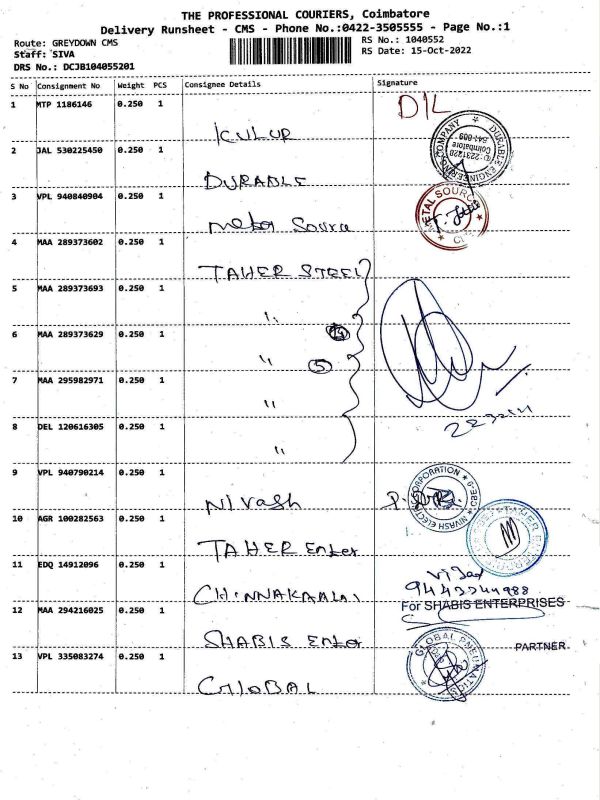 THE PROFESSIONAL COURIERS, Coimbatore
Delivery Runsheet - CMS - Phone No.:0422-3505555 - Page No.:1
Route: GREYDOWN CMS RS No.: 1040552
Staff: SIVA RS Date: 15-Oct-2022
DRS No.: DCJB104055201
S No Consignment No Weight PCS Consignee Details Signature
1 MTP 1186146 0.250 1 D/L
2 JAL 530225450 0.250 1 DURABLE
3 VPL 940840904 0.250 1 Metal Source
4 MAA 289373602 0.250 1 TAHER STEEL
5 MAA 289373693 0.250 1 "
6 MAA 289373629 0.250 1 "
5
7 MAA 295982971 0.250 1 "
8 DEL 120616305 0.250 1 "
9 VPL 940790214 0.250 1 Nivash
10 AGR 100282563 0.250 1 TAHER Enter
11 EDQ 14912096 0.250 1
12 MAA 294216025 0.250 1 SHABIS Enter
For SHABIS ENTERPRISES
PARTNER
13 VPL 335083274 0.250 1 GLOBAL
DURABLE ENGINEERING COMPANY
Coimbatore
METAL SOURCE
TAHER
GLOBAL PNEUMATICS